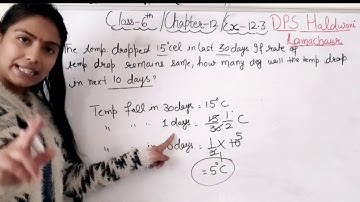 Class-6th / Chapter-12 / Ex-12.3
DPS Haldwani
Lamachaur
The temp. dropped 15°cel in last 30 days If rate of
temp drop remains same, how many deg will the temp drop
in next 10 days?
Temp fall in 30 days = 15°C
" " " 1 days = 15/30 1/2 °C
" in 10 days = 1/2 x 10 5
= 5°C